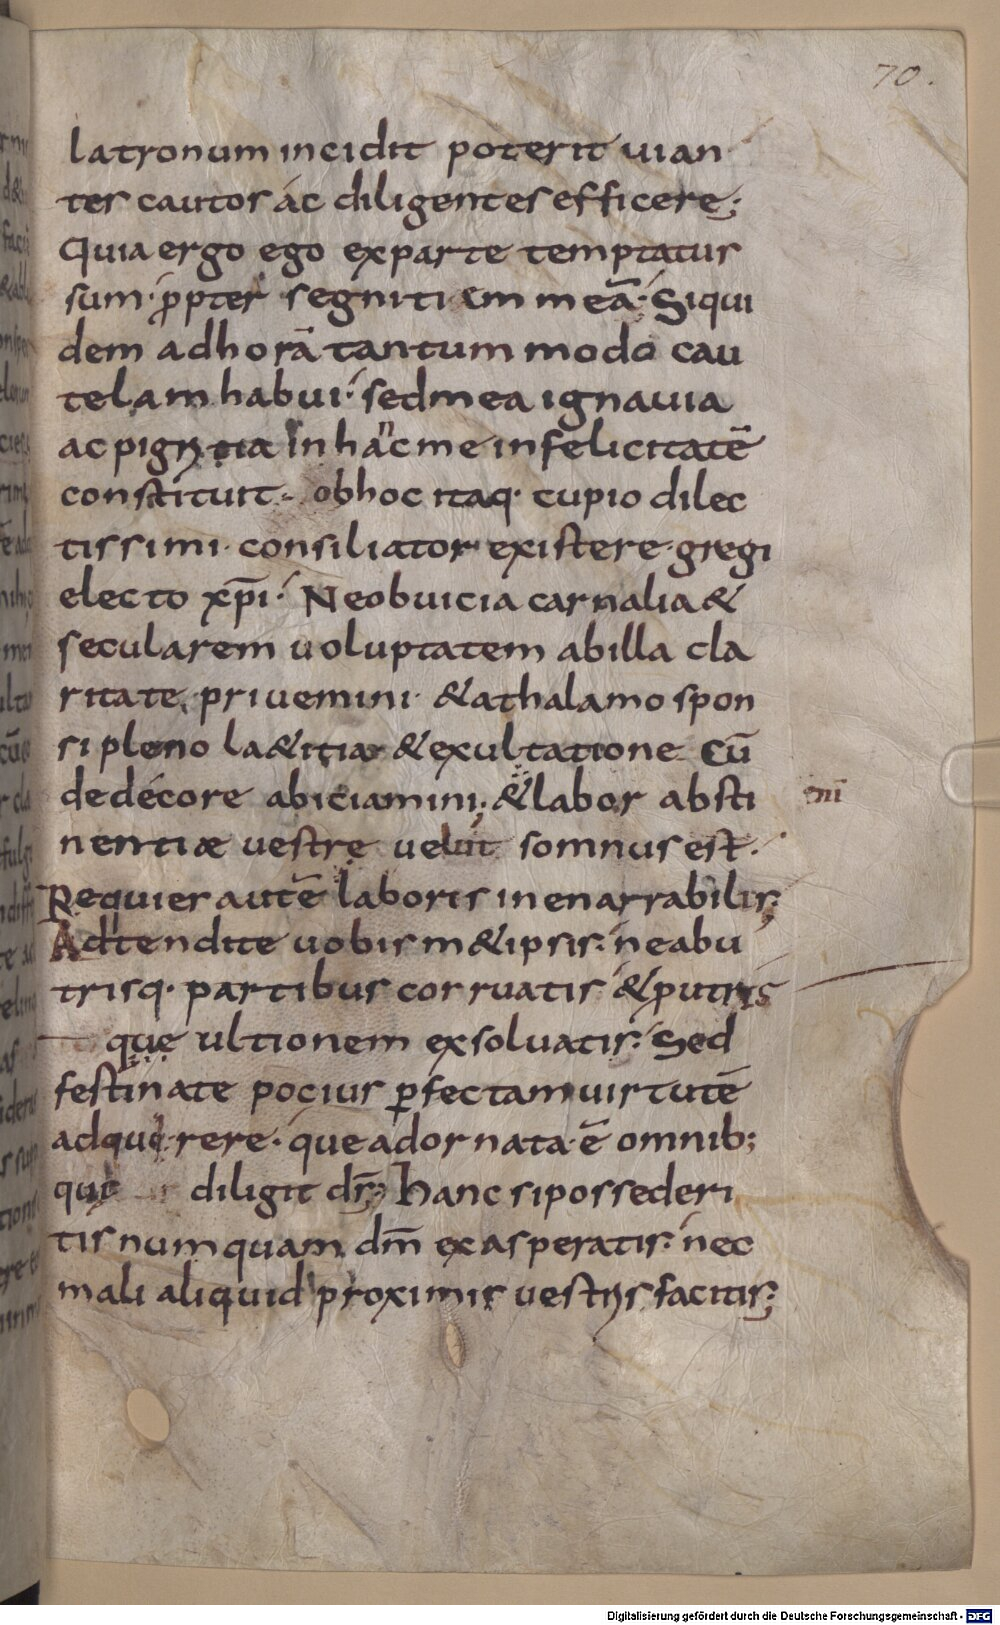 70.
latronum incidit poterit uian
ter cautos ac diligentes efficere;
Quia ergo ego ex parte temptatus
sum· ꝓpter segnitiem meā· Siqui
dem ad horā tantum modo cau
telam habui· sed mea ignauia
ac pigritia in hanc me infelicitatē
constituit· ob hoc itaq· cupio dilec
tissimi· consiliator existere· gregi
electo xp̄i· Ne ob uicia carnalia &
secularem uoluptatem ab illa cla
ritate priuemini· & a thalamo spon
si pleno la&itia & exultatione cū
dedecore abiciamini; & labor absti
nī
nentiæ uestrę uelut somnus est·
Requies autē laboris inenarrabilis;
Adtendite uobism&ipsis· ne ab u
trisq· partibus corruatis & putris
que ultionem exsoluatis· Sed
festinate pocius ꝑfectam uirtutē
adquirere· que adornata ē omnib;
que diligit dn̄s; Hanc si possederi
tis numquam dm̄ exasperatis· nec
mali aliquid proximis uestris facitis;
Digitalisierung gefördert durch die Deutsche Forschungsgemeinschaft - DFG